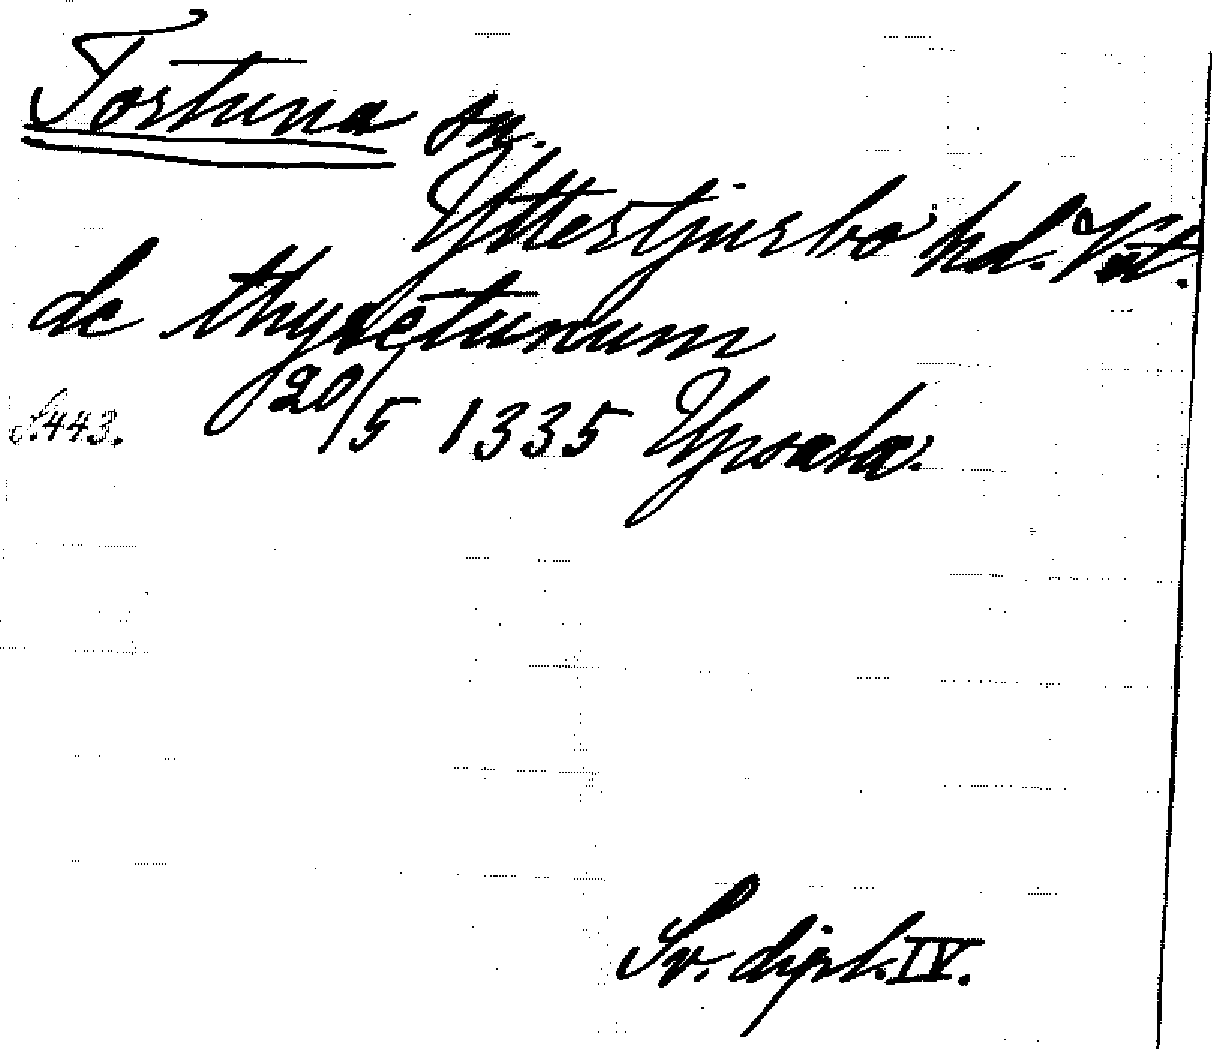 Tortuna sn.
Yttertjurbo hd. Vst.
de thyrætunum
S. 443. 20/5 1335 Upsala.
Sv. dipl. IV.